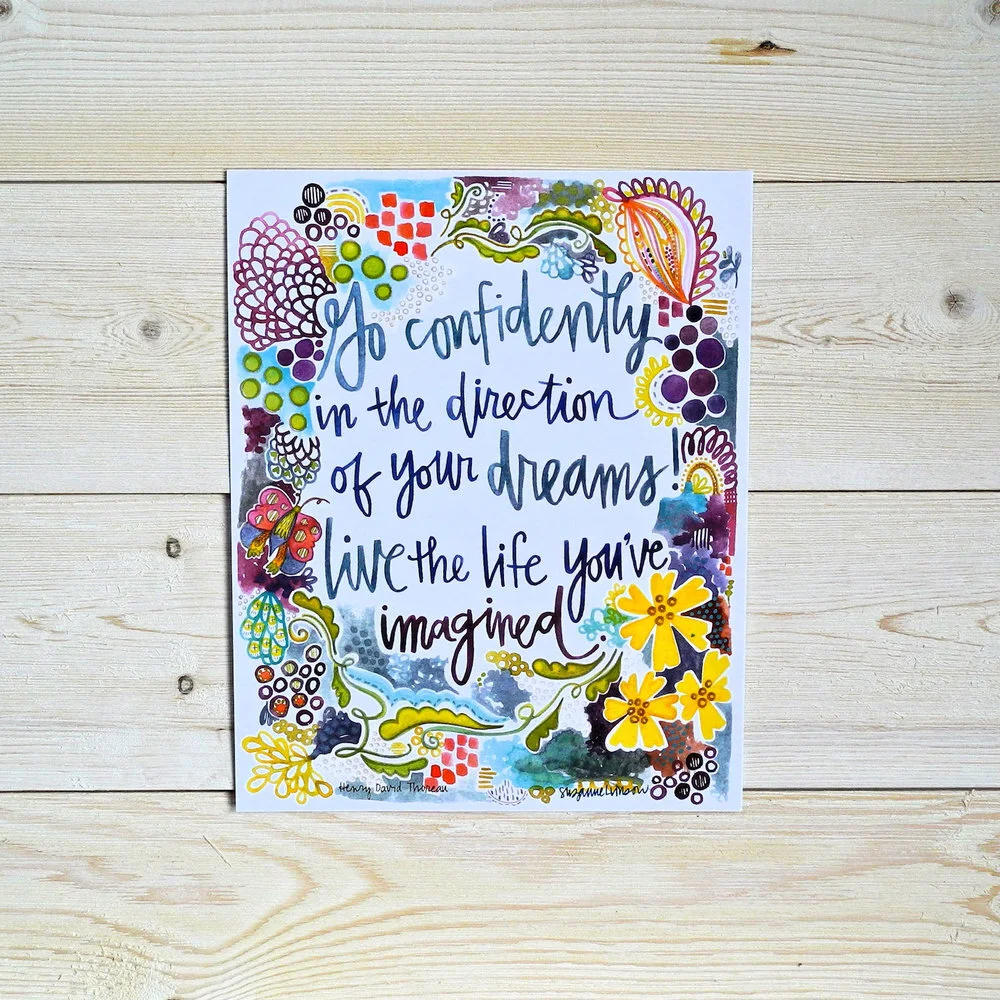 Go confidently
in the direction
of your dreams!
live the life you've
imagined.
Henry David Thoreau
Suzanne Vinson